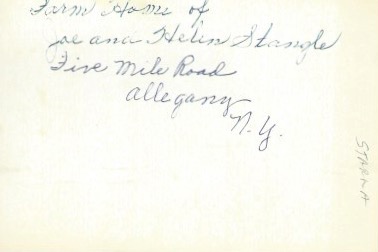 Farm Home of
Joe and Helen Stangle
Five Mile Road
Allegany
N.Y.